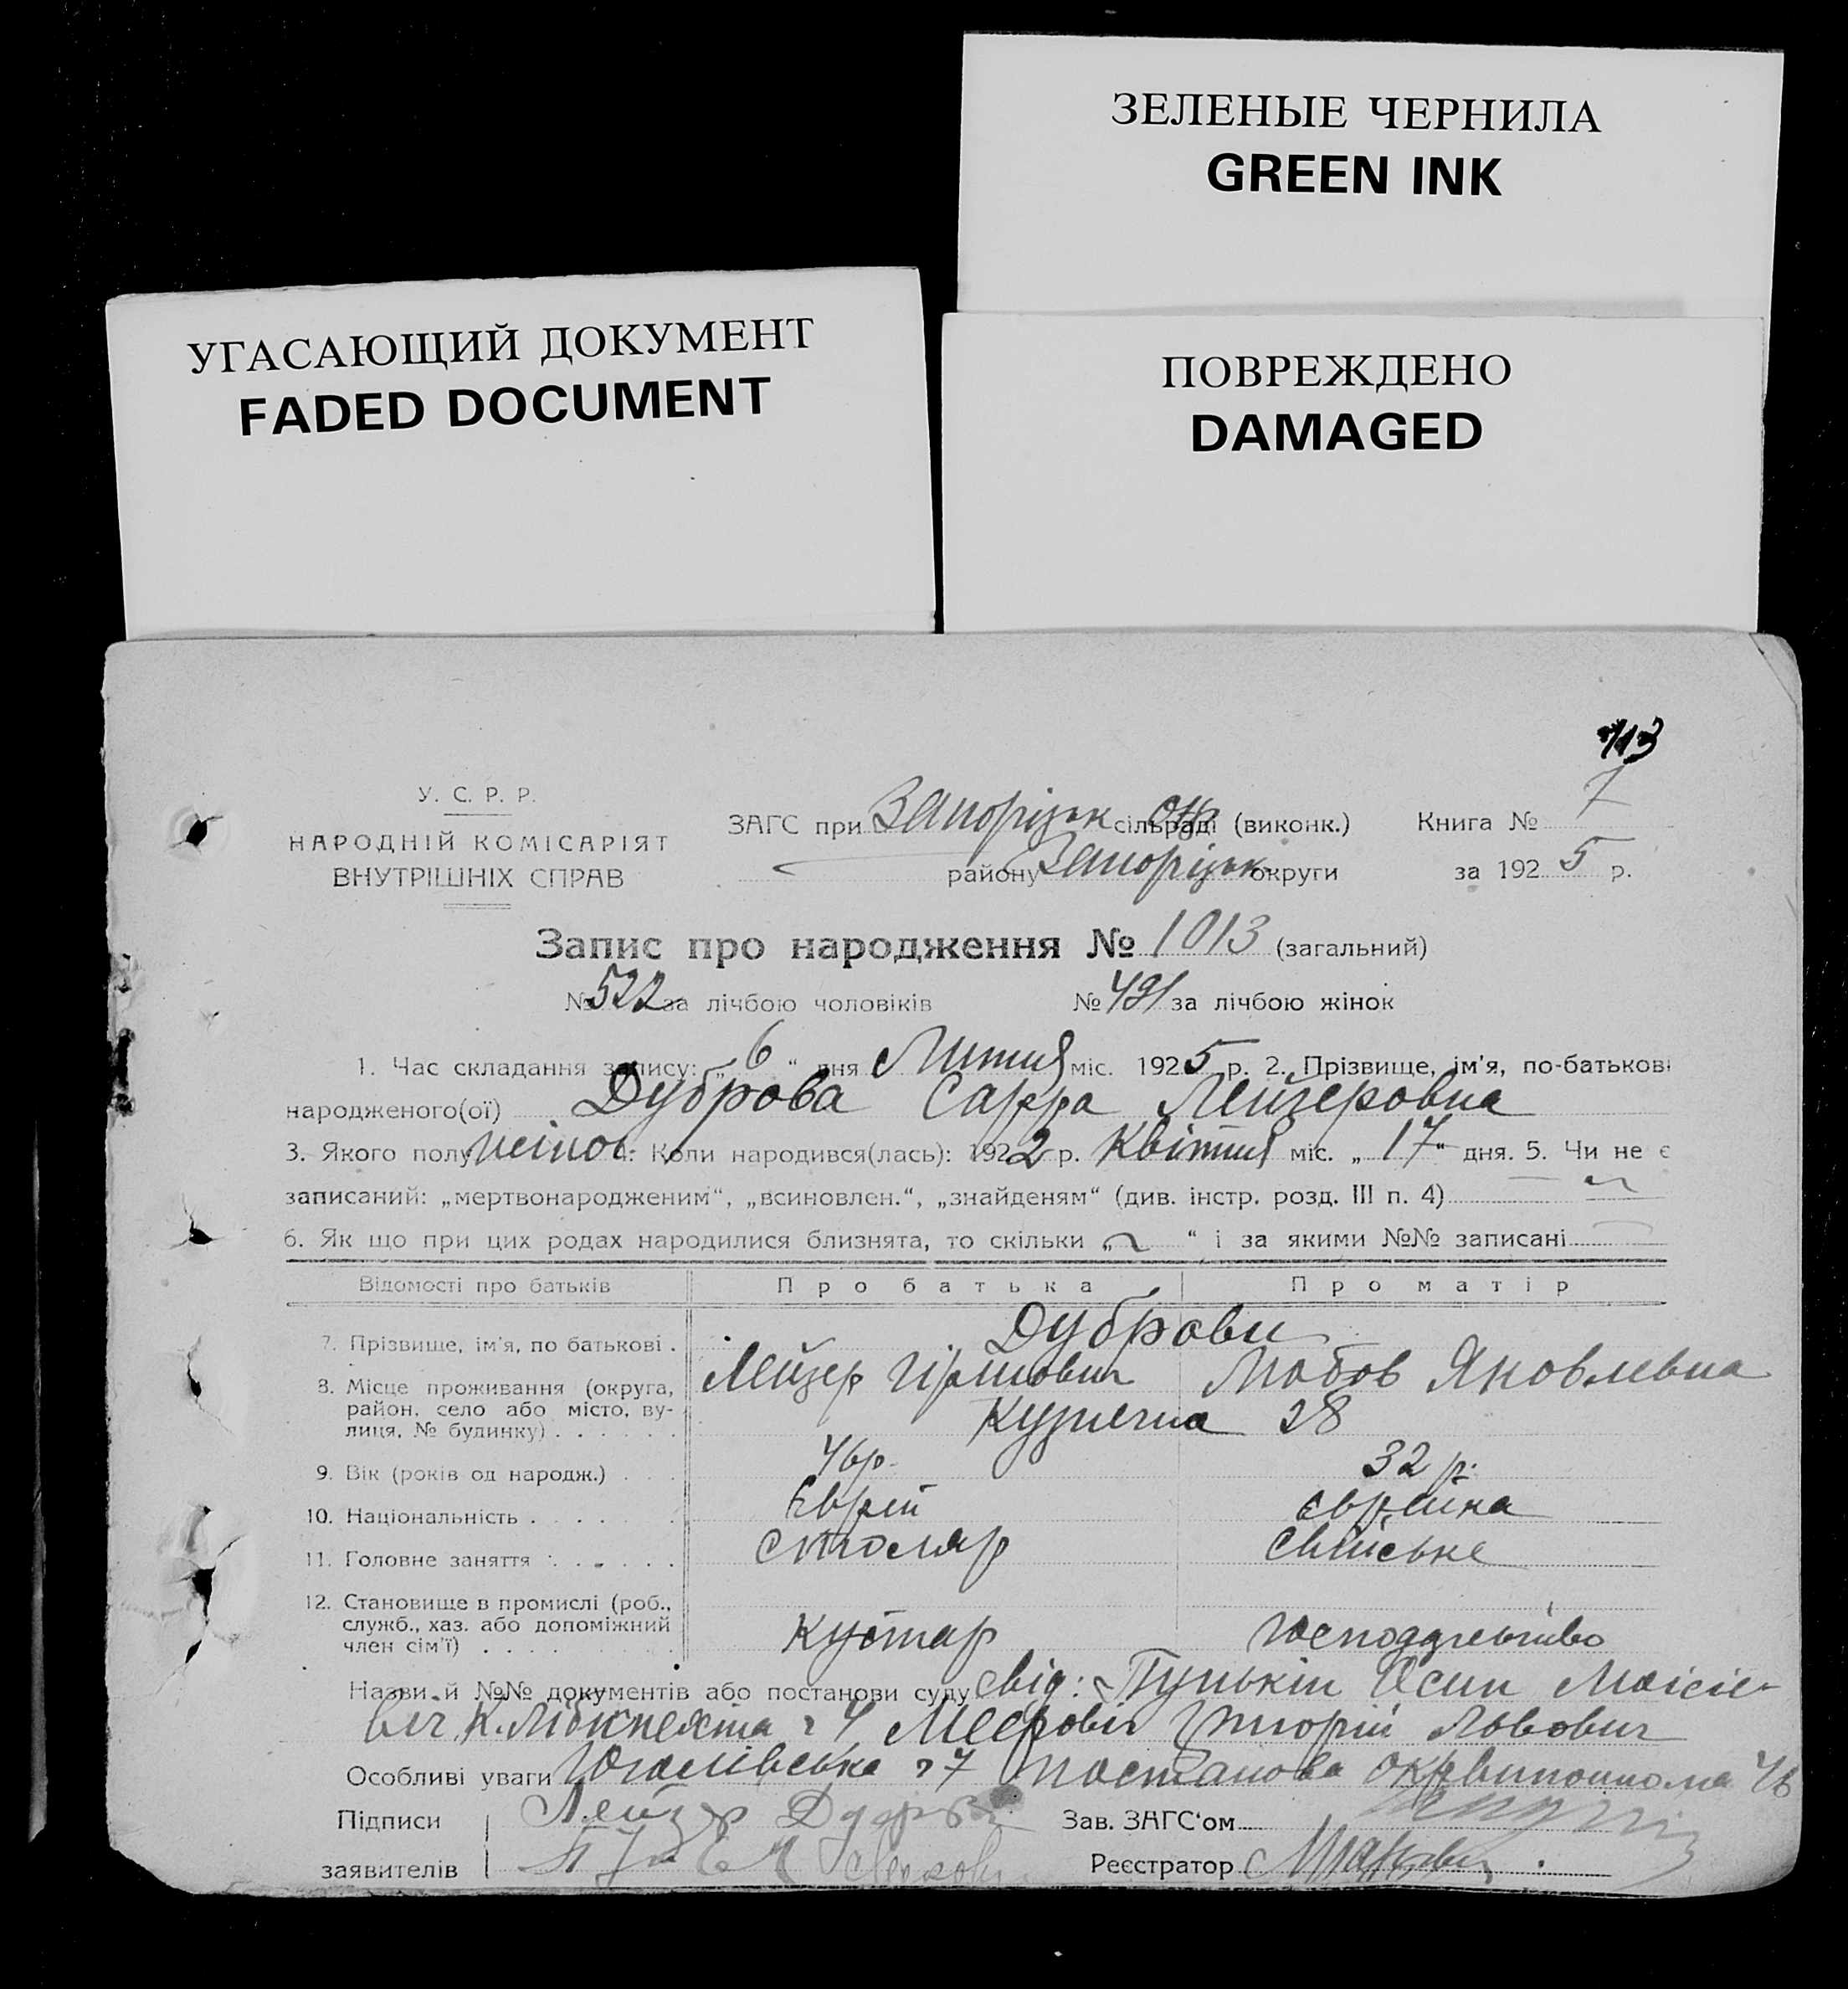 ЗЕЛЕНЫЕ ЧЕРНИЛА
GREEN INK
УГАСАЮЩИЙ ДОКУМЕНТ
FADED DOCUMENT
ПОВРЕЖДЕНО
DAMAGED
113
У. С. Р. Р.
НАРОДНІЙ КОМІСАРІЯТ
ВНУТРІШНІХ СПРАВ
ЗАГС при Запоріжк окр сільраді (виконк.)
району Запоріжк округи
Книга № 7
за 1925 р.
Запис про народження № 1013 (загальний)
№ 522 за лічбою чоловіків № 491 за лічбою жінок
1. Час складання запису: „ 6 “ дня Липня міс. 1925 р. 2. Прізвище, ім'я, по-батькові
народженого(ої) Дуброва Сарра Лейзеровна
3. Якого полу жіноч. 4. Коли народився(лась): 1922 р. Квітня міс. „ 17 “ дня. 5. Чи не є
записаний: „мертвонародженим“, „всиновлен.“, „знайденям“ (див. інстр. розд. III п. 4)
6. Як що при цих родах народилися близнята, то скільки „ “ і за якими №№ записані
Відомості про батьків Про батька Про матір
Дуброви
7. Прізвище, ім'я, по батькові . Лейзер Гіршович Любов Яковлевна
8. Місце проживання (округа,
район, село або місто, ву-
лиця, № будинку) . . . . . . Кузнечна 28
9. Вік (років од народж.) . . . 46р. 32 р.
10. Національність . . . . . . Єврей єврейка
11. Головне заняття . . . . . . столяр свійське
12. Становище в промислі (роб.,
служб., хаз. або допоміжний
член сім'ї) . . . . кустар господарство
Назви й №№ документів або постанови суду свід: Пунькін Осип Моісіє-
вич К. Лібкнехта 4 Меєрович Григорій Львович
Особливі уваги 7 постанова окрвиконкома 46
Підписи Лейзер Зав. ЗАГС'ом
заявителів Реєстратор